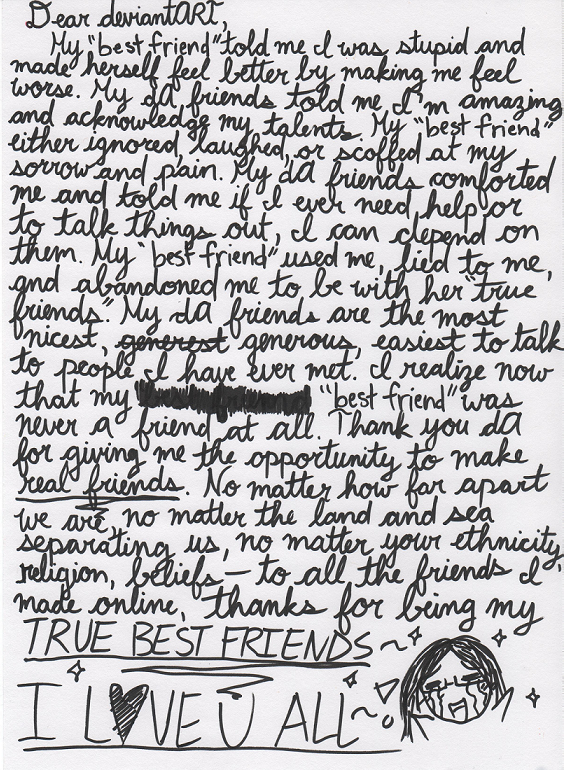 Dear deviantART,
My "best friend" told me I was stupid and
made herself feel better by making me feel
worse. My dA friends told me I'm amazing
and acknowledge my talents. My "best friend"
either ignored, laughed, or scoffed at my
sorrow and pain. My dA friends comforted
me and told me if I ever need help or
to talk things out, I can depend on
them. My "best friend" used me, lied to me,
and abandoned me to be with her "true
friends". My dA friends are the most
nicest, generest generous, easiest to talk
to people I have ever met. I realize now
that my "best friend" was
never a friend at all. Thank you dA
for giving me the opportunity to make
real friends. No matter how far apart
we are, no matter the land and sea
separating us, no matter your ethnicity,
religion, beliefs — to all the friends I
made online, thanks for being my
TRUE BEST FRIENDS~
I L♥VE U ALL~